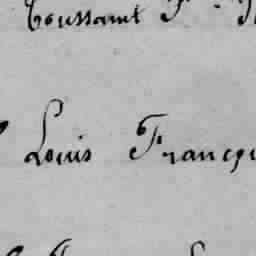 Toussaint
Louis Françoi